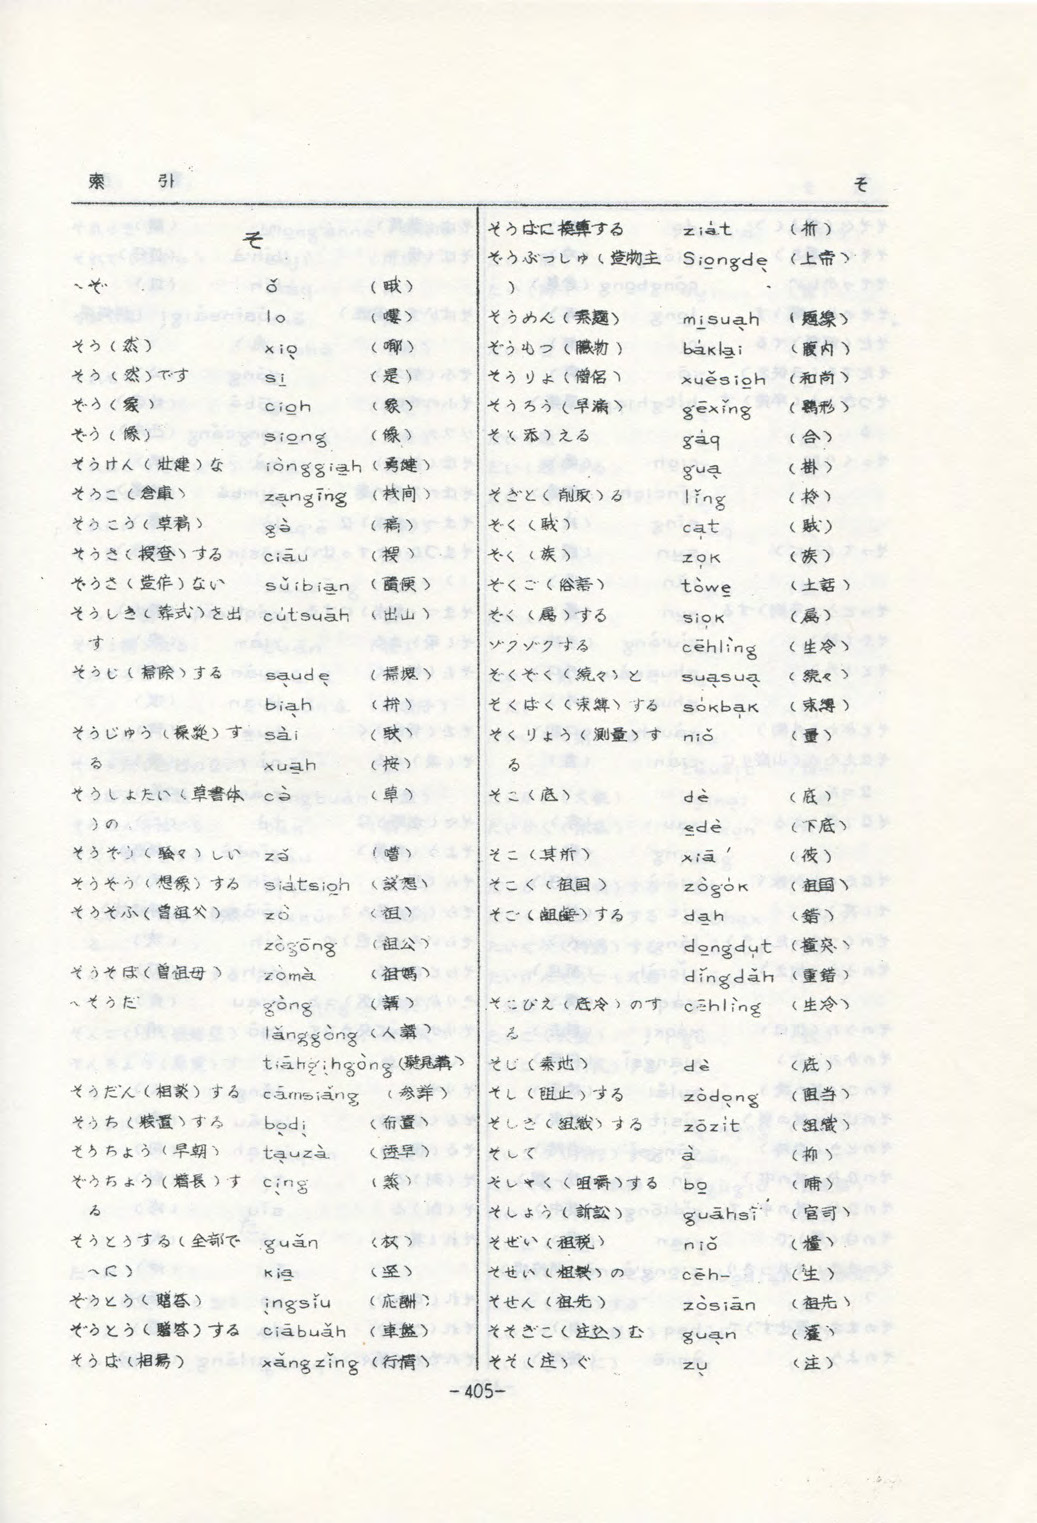 索 引 そ
そ
～ぞ ǒ (哦)
lo (嘍)
そう(然) xiọ (嘟)
そう(然)です si̱ (是)
ぞう(象) cio̱h (象)
ぞう(像) sio̱ng (像)
そうけん(壮健)な iònggia̱h (勇健)
そうこ(倉庫) zạngīng (桟間)
そうこう(草稿) gà (稿)
そうさ(捜査)する ciāu (捜)
ぞうさ(造作)ない sǔibia̱n (随便)
そうしき(葬式)を出 cútsuāh (出山)
す
そうじ(掃除)する sạudẹ (掃塊)
bia̱h (拚)
そうじゅう(操縦)す sài (駛)
る xua̱h (按)
そうしょたい(草書体 cà (草)
)の
そうぞう(騒々)しい zǎ (嘈)
そうぞう(想像)する siátsio̱h (設想)
そうそふ(曽祖父) zò (祖)
zògōng (祖公)
そうそぼ(曽祖母) zòmà (祖媽)
～そうだ gòng (講)
lǎnggòng (人講)
tiāhgịhgòng (聴見講)
そうだん(相談)する cāmsiǎng (参詳)
そうち(装置)する bọdị (布置)
そうちょう(早朝) tạuzà (透早)
ぞうちょう(増長)す cịng (蒸)
る
そうとうする(全部で guǎn
～に) kia̱
ぞうとう(贈答) ịngsǐu (応酬)
ぞうとう(贈答)する ciābuǎh (車盤)
そうば(相場) xǎngzǐng (行情)
そうばに換算する ziát (折)
そうぶつしゅ(造物主 Sio̱ngdẹ (上帝)
)
そうめん(素麺) mi̱suạh (麺線)
ぞうもつ(臓物) bǎkla̱i (腹内)
そうりょ(僧侶) xuěsio̱h (和尚)
そうろう(早漏) gēxǐng (鶏形)
そえ(添)える gáq (合)
guạ (掛)
そぎと(削取)る lǐng
ぞく(賊) ca̱t (賊)
ぞく(族) zo̱k (族)
ぞくご(俗語) tòwe̱ (土話)
ぞく(属)する sio̱k (属)
ゾクゾクする cēhlìng (生冷)
ぞくぞく(続々)と suạsuạ (続々)
そくばく(束縛)する sókba̱k (束縛)
そくりょう(測量)す niǒ (量)
る
そこ(底) dè (底)
e̱dè (下底)
そこ(其所) xiā (彼)
そこく(祖国) zògók (祖国)
そご(齟齬)する da̱h (錯)
do̱ngdụt (撞突)
dǐngdǎh (重錯)
そこびえ(底冷)のす cēhlìng (生冷)
る
そじ(素地) dè (底)
そし(阻止)する zòdọng (阻当)
そしき(組織)する zōzít (組織)
そして à (抑)
そしゃく(咀嚼)する bo̱ (哺)
そしょう(訴訟) guāhsī (官司)
そぜい(租税) niǒ (糧)
そせい(粗製)の cēh- (生)
そせん(祖先) zòsiān (祖先)
そそぎこ(注込)む guạn (灌)
そそ(注)ぐ zụ (注)
-405-